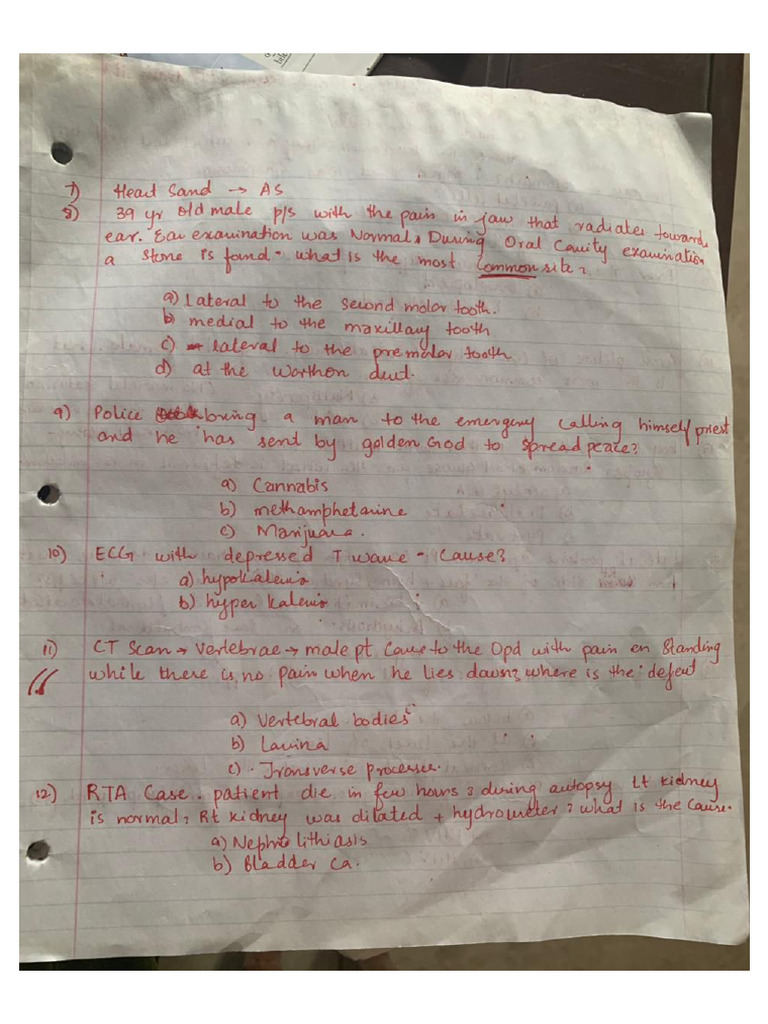 7) Heart Sand → AS
8) 39 yr old male p/s with the pain in jaw that radiates towards
ear. Ear examination was Normal, During Oral Cavity examination
a stone is found. what is the most common site?
a) Lateral to the second molar tooth.
b) medial to the maxillary tooth
c) lateral to the premolar tooth
d) at the Warthon duct.
9) Police bring a man to the emergency calling himself priest
and he has send by golden God to spread peace?
a) Cannabis
b) methamphetamine
c) Marijuana.
10) ECG with depressed T wave - Cause?
a) hypokalemia
b) hyper kalemia
11) CT Scan → Vertebrae → male pt. Came to the Opd with pain en Standing
while there is no pain when he lies down? where is the defect
a) Vertebral bodies
b) Lamina
c) Transverse processes.
12) RTA Case. patient die in few hours? during autopsy Lt kidney
is normal, Rt kidney was dilated + hydrometer? what is the Cause.
a) Nephro lithiasis
b) Bladder Ca.